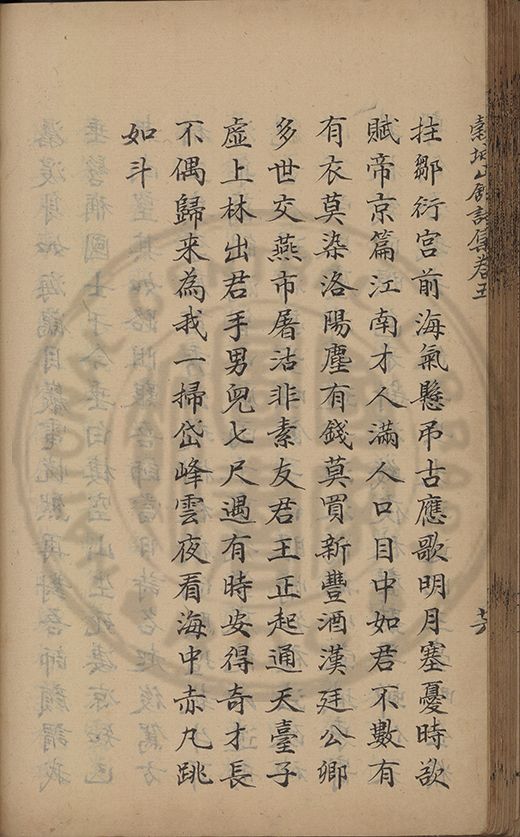 穀城山館詩集卷五
拄鄒衍宮前海氣懸弔古應歌明月塞憂時欲
賦帝京篇江南才人滿人口目中如君不數有
有衣莫染洛陽塵有錢莫買新豐酒漢廷公卿
多世交燕市屠沽非素友君王正起通天臺子
虛上林出君手男兒七尺遇有時安得奇才長
不偶歸來為我一掃岱峰雲夜看海中赤丸跳
如斗